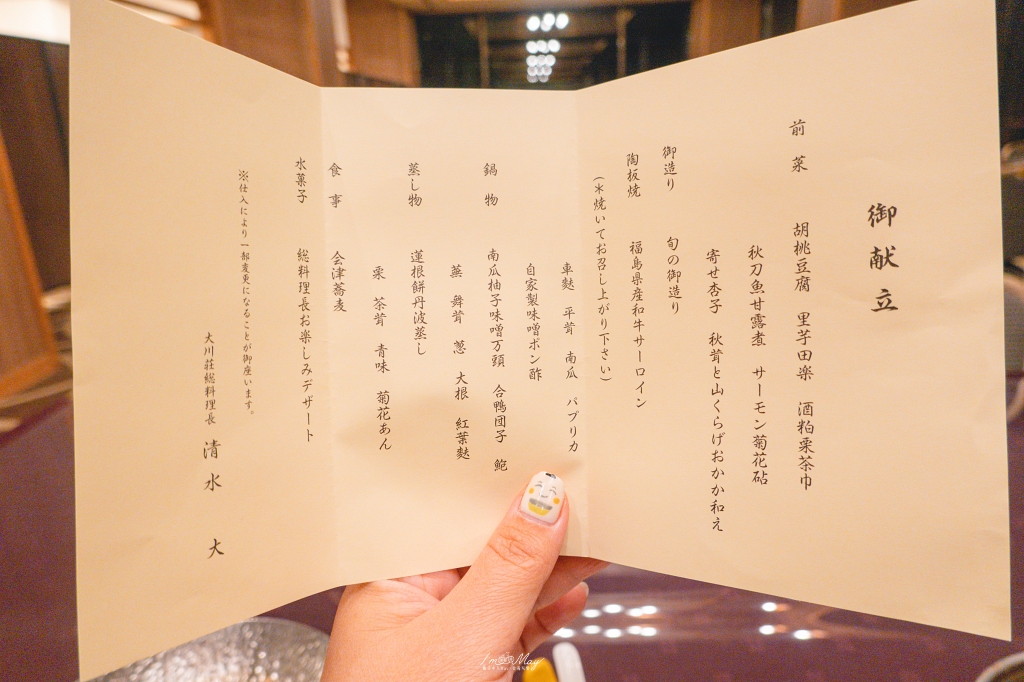 御献立
前菜　胡桃豆腐　里芋田楽　酒粕栗茶巾
秋刀魚甘露煮　サーモン菊花砧
寄せ杏子　秋茸と山くらげおかか和え
御造り　旬の御造り
陶板焼　福島県産和牛サーロイン
（＊焼いてお召し上がり下さい）
車麩　平茸　南瓜　パプリカ
自家製味噌ポン酢
鍋物　南瓜柚子味噌万頭　合鴨団子　鮑
蕪　舞茸　葱　大根　紅葉麩
蒸し物　蓮根餅丹波蒸し
栗　茶茸　青味　菊花あん
食事　会津蕎麦
水菓子　総料理長お楽しみデザート
※仕入により一部変更になることが御座います。
大川荘総料理長　清水　大
I'm May